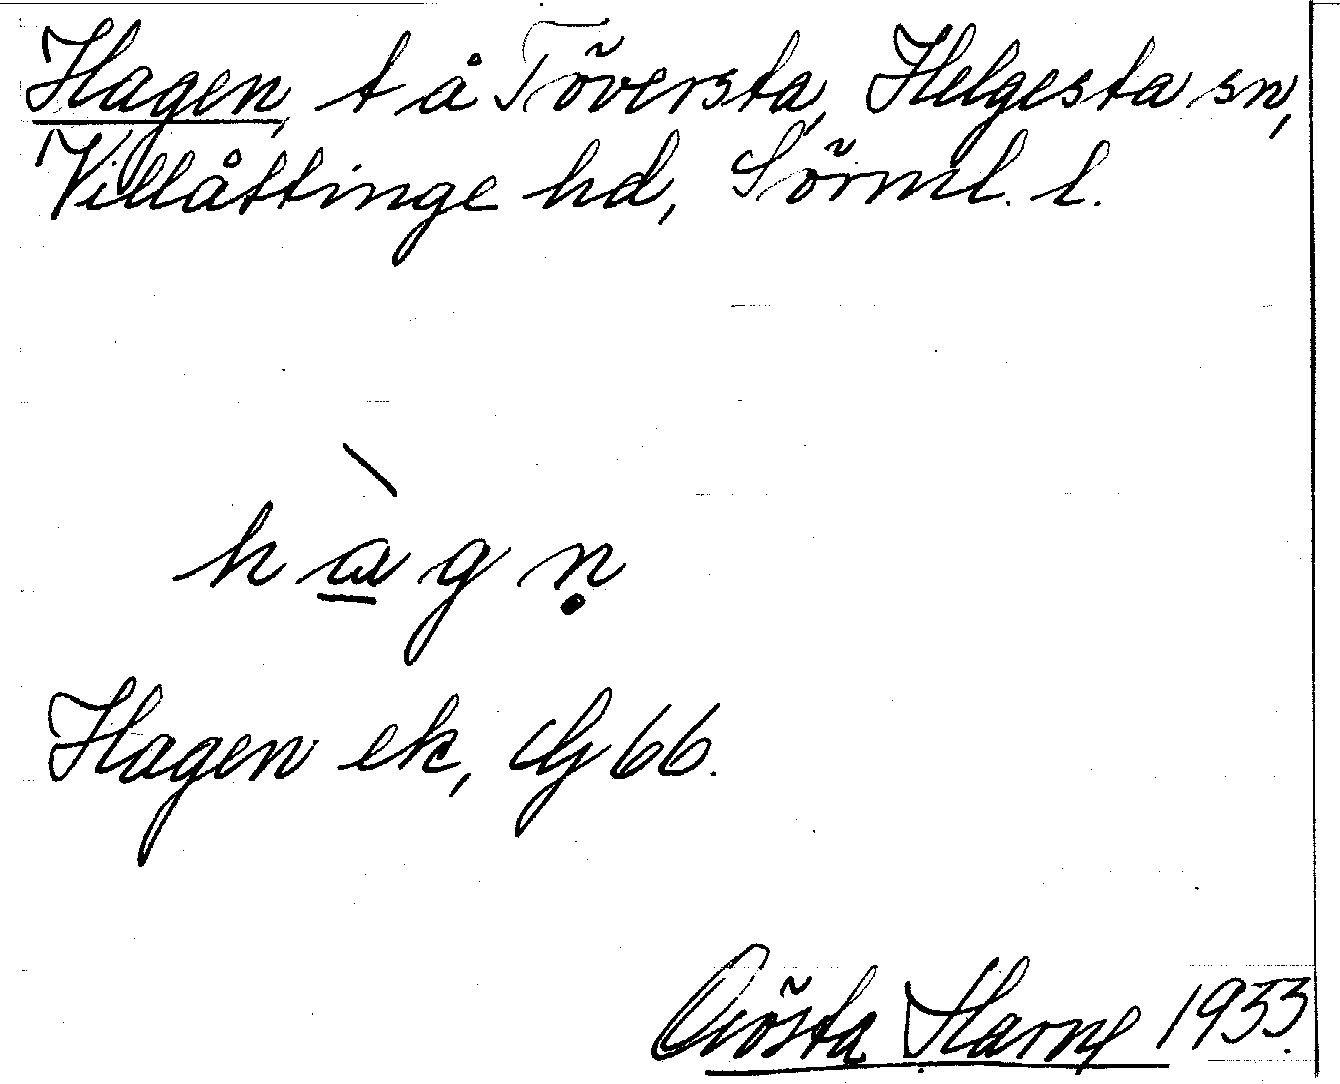 Hagen, t å Töversta, Helgesta sn,
Villåttinge hd, Sörml. l.
hàgṇ
Hagen ek, G 66.
Gösta Harne 1933.